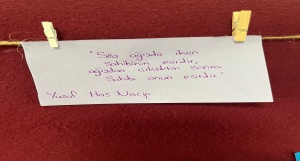 "Söz ağızda iken
sahibinin esiridir,
ağızdan çıktıktan sonra
sahibi onun esiridir."
Yusuf Has Hacip.